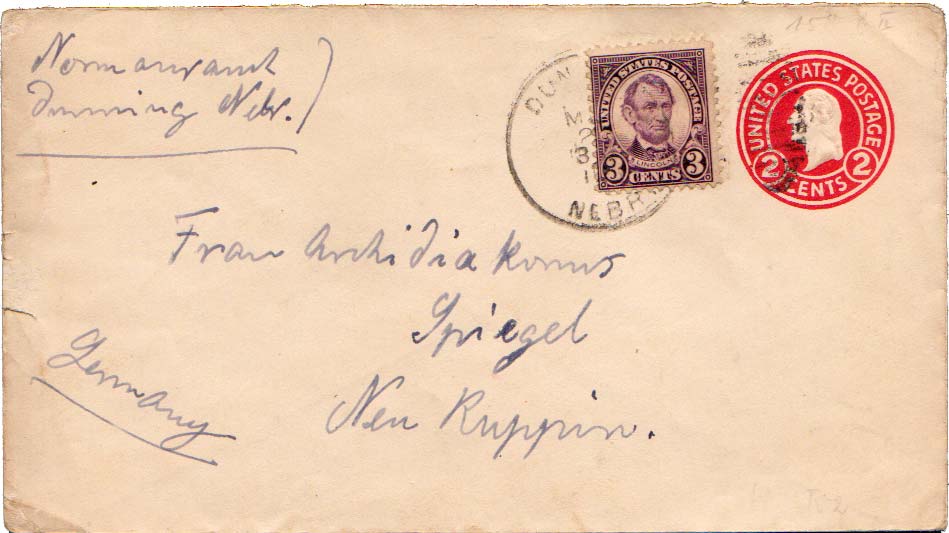 Dunning Nebr.
UNITED STATES POSTAGE
LINCOLN
3 CENTS 3
DUN
NEBR
UNITED STATES POSTAGE
2 CENTS 2
Frau Archidiakonus
Spiegel
Neu Ruppin.
Germany